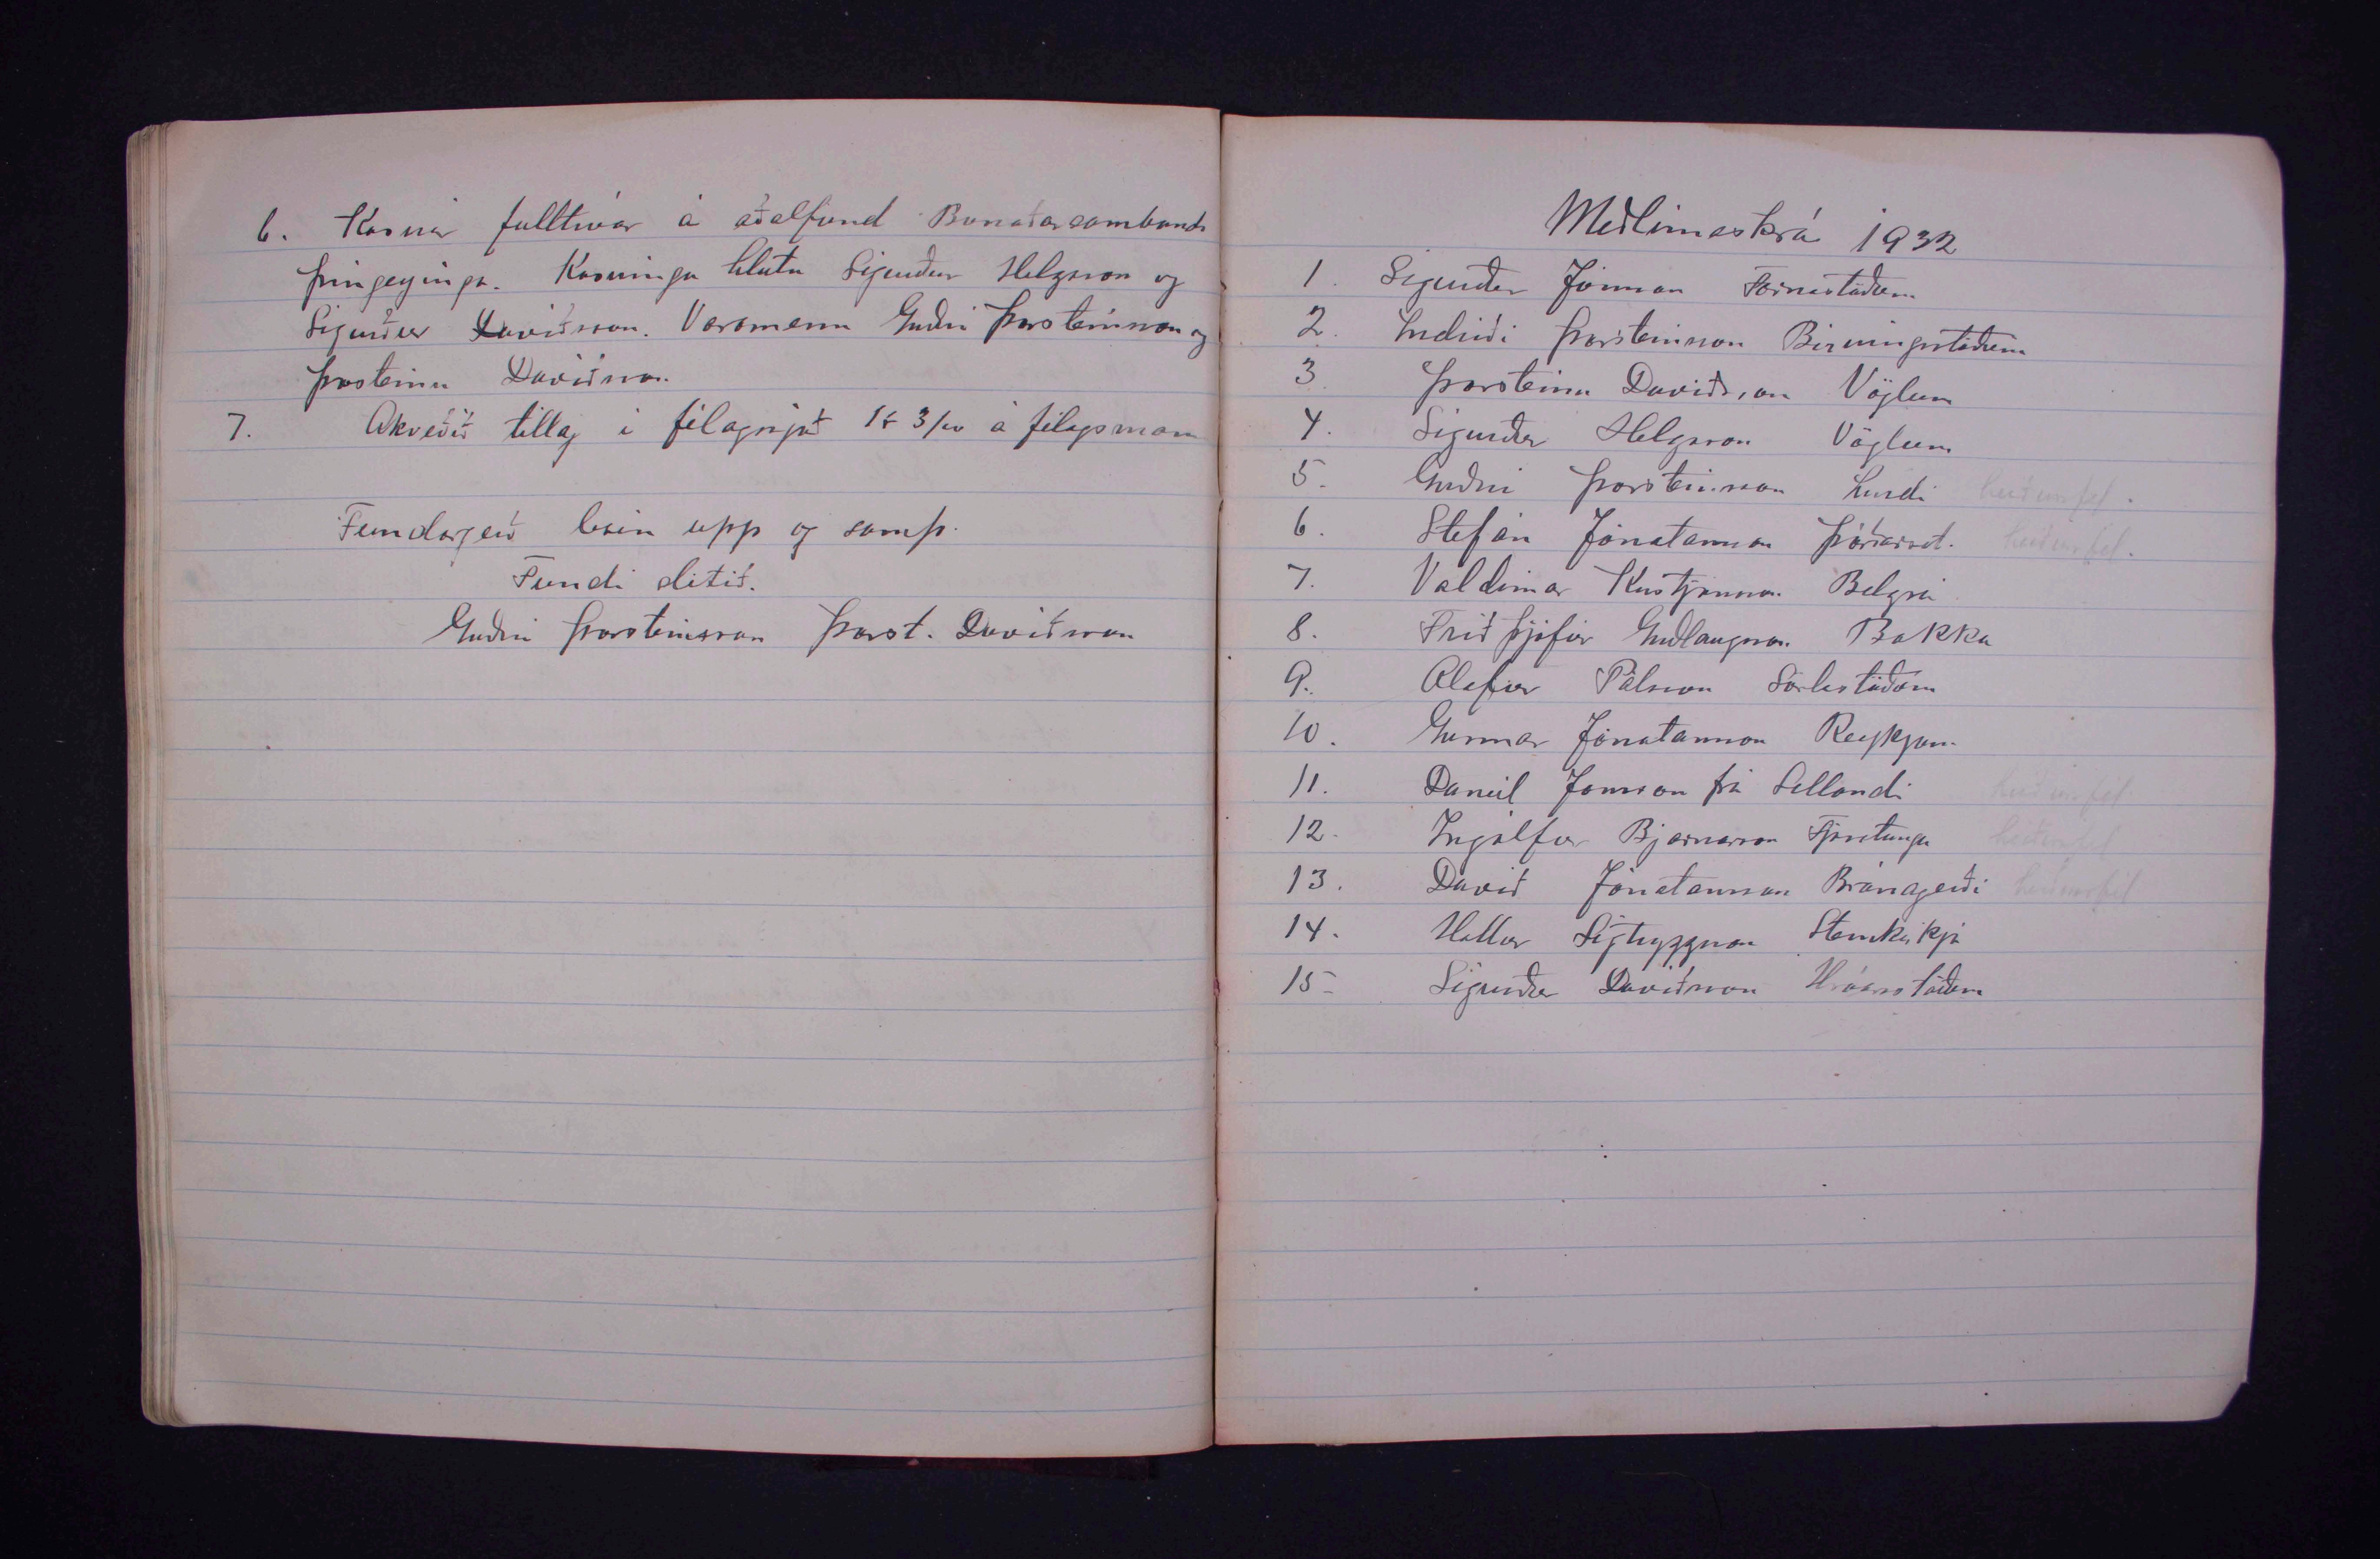 6. Kosnir fulltrúar á aðalfund Bunaðarsambands
Þingeyinga. Kosningu hlutu Sigurður Helgason og
Sigurður Davíðsson. Varamenn Guðni Þorsteinsson og
Þorsteinn Davíðsson.
7. Akveðið tillag i félagssjóð kr 3/00 á félagsmann
Fundargerð lesin upp og samþ.
Fundi slitið.
Guðni Þorsteinsson Þorst. Davíðsson
Meðlimaskrá 1932
1. Sigurður Jónsson Fornastöðum
2. Indriði Þorsteinsson Birningsstöðum
3. Þorsteinn Davíðsson Vöglum
4. Sigurður Helgason Vöglum
5. Guðni Þorsteinsson Lundi heiðursfel.
6. Stefán Jónatansson Þórðarst. heiðursfel.
7. Valdimar Kristjánsson Belgsá
8. Friðþjófur Guðlaugsson Bakka
9. Olafur Pálsson Sörlastöðum
10. Gunnar Jónatansson Reykjum
11. Daníel Jónsson frá Sellandi heiðursfél
12. Ingólfur Bjarnarson Fjósatungu heiðursfél
13. Davíð Jónatansson Brúnagerði heiðursfél
14. Hallur Sigtryggsson Steinkirkju
15 Sigurður Davíðsson Hróarsstöðum